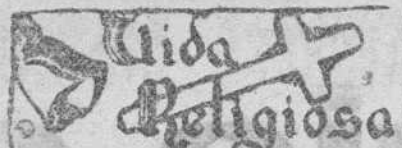 Vida
Religiosa